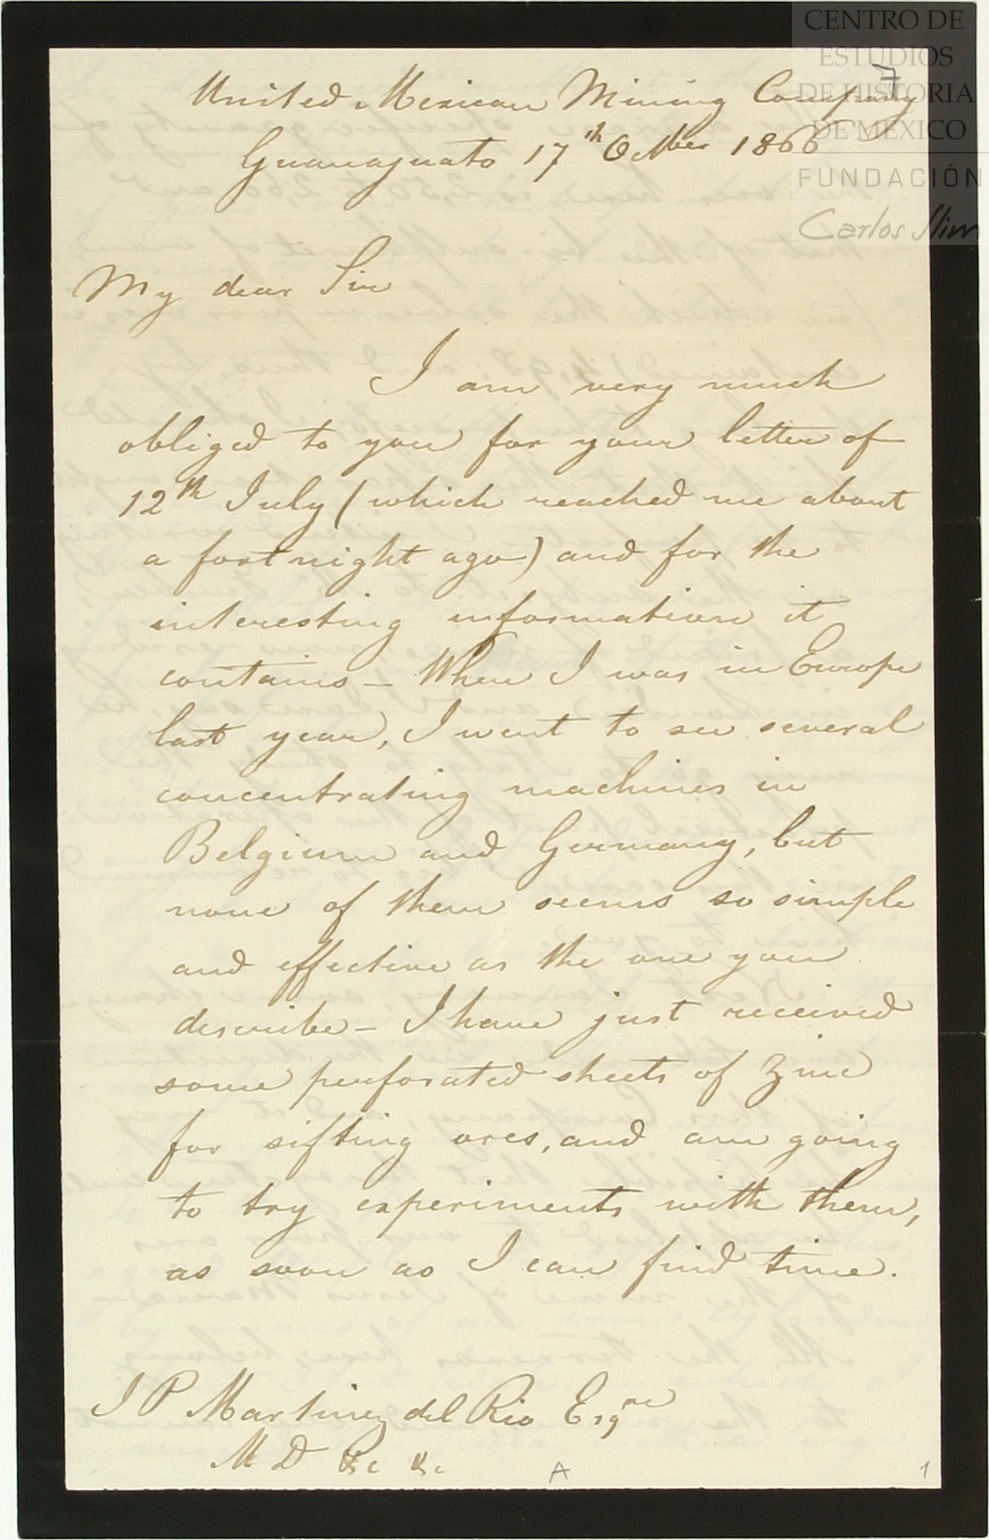 CENTRO DE
ESTUDIOS
DE HISTORIA
DE MÉXICO
FUNDACIÓN
Carlos Slim
7
United Mexican Mining Company
Guanajuato 17th October 1866
My dear Sir
I am very much
obliged to you for your letter of
12th July (which reached me about
a fortnight ago) and for the
interesting information it
contains – When I was in Europe
last year, I went to see several
concentrating machines in
Belgium and Germany, but
none of them seems so simple
and effective as the one you
describe – I have just received
some perforated sheets of zinc
for sifting ores, and am going
to try experiments with them,
as soon as I can find time.
J P Martinez del Rio Esqre
M D &c &c
A
1